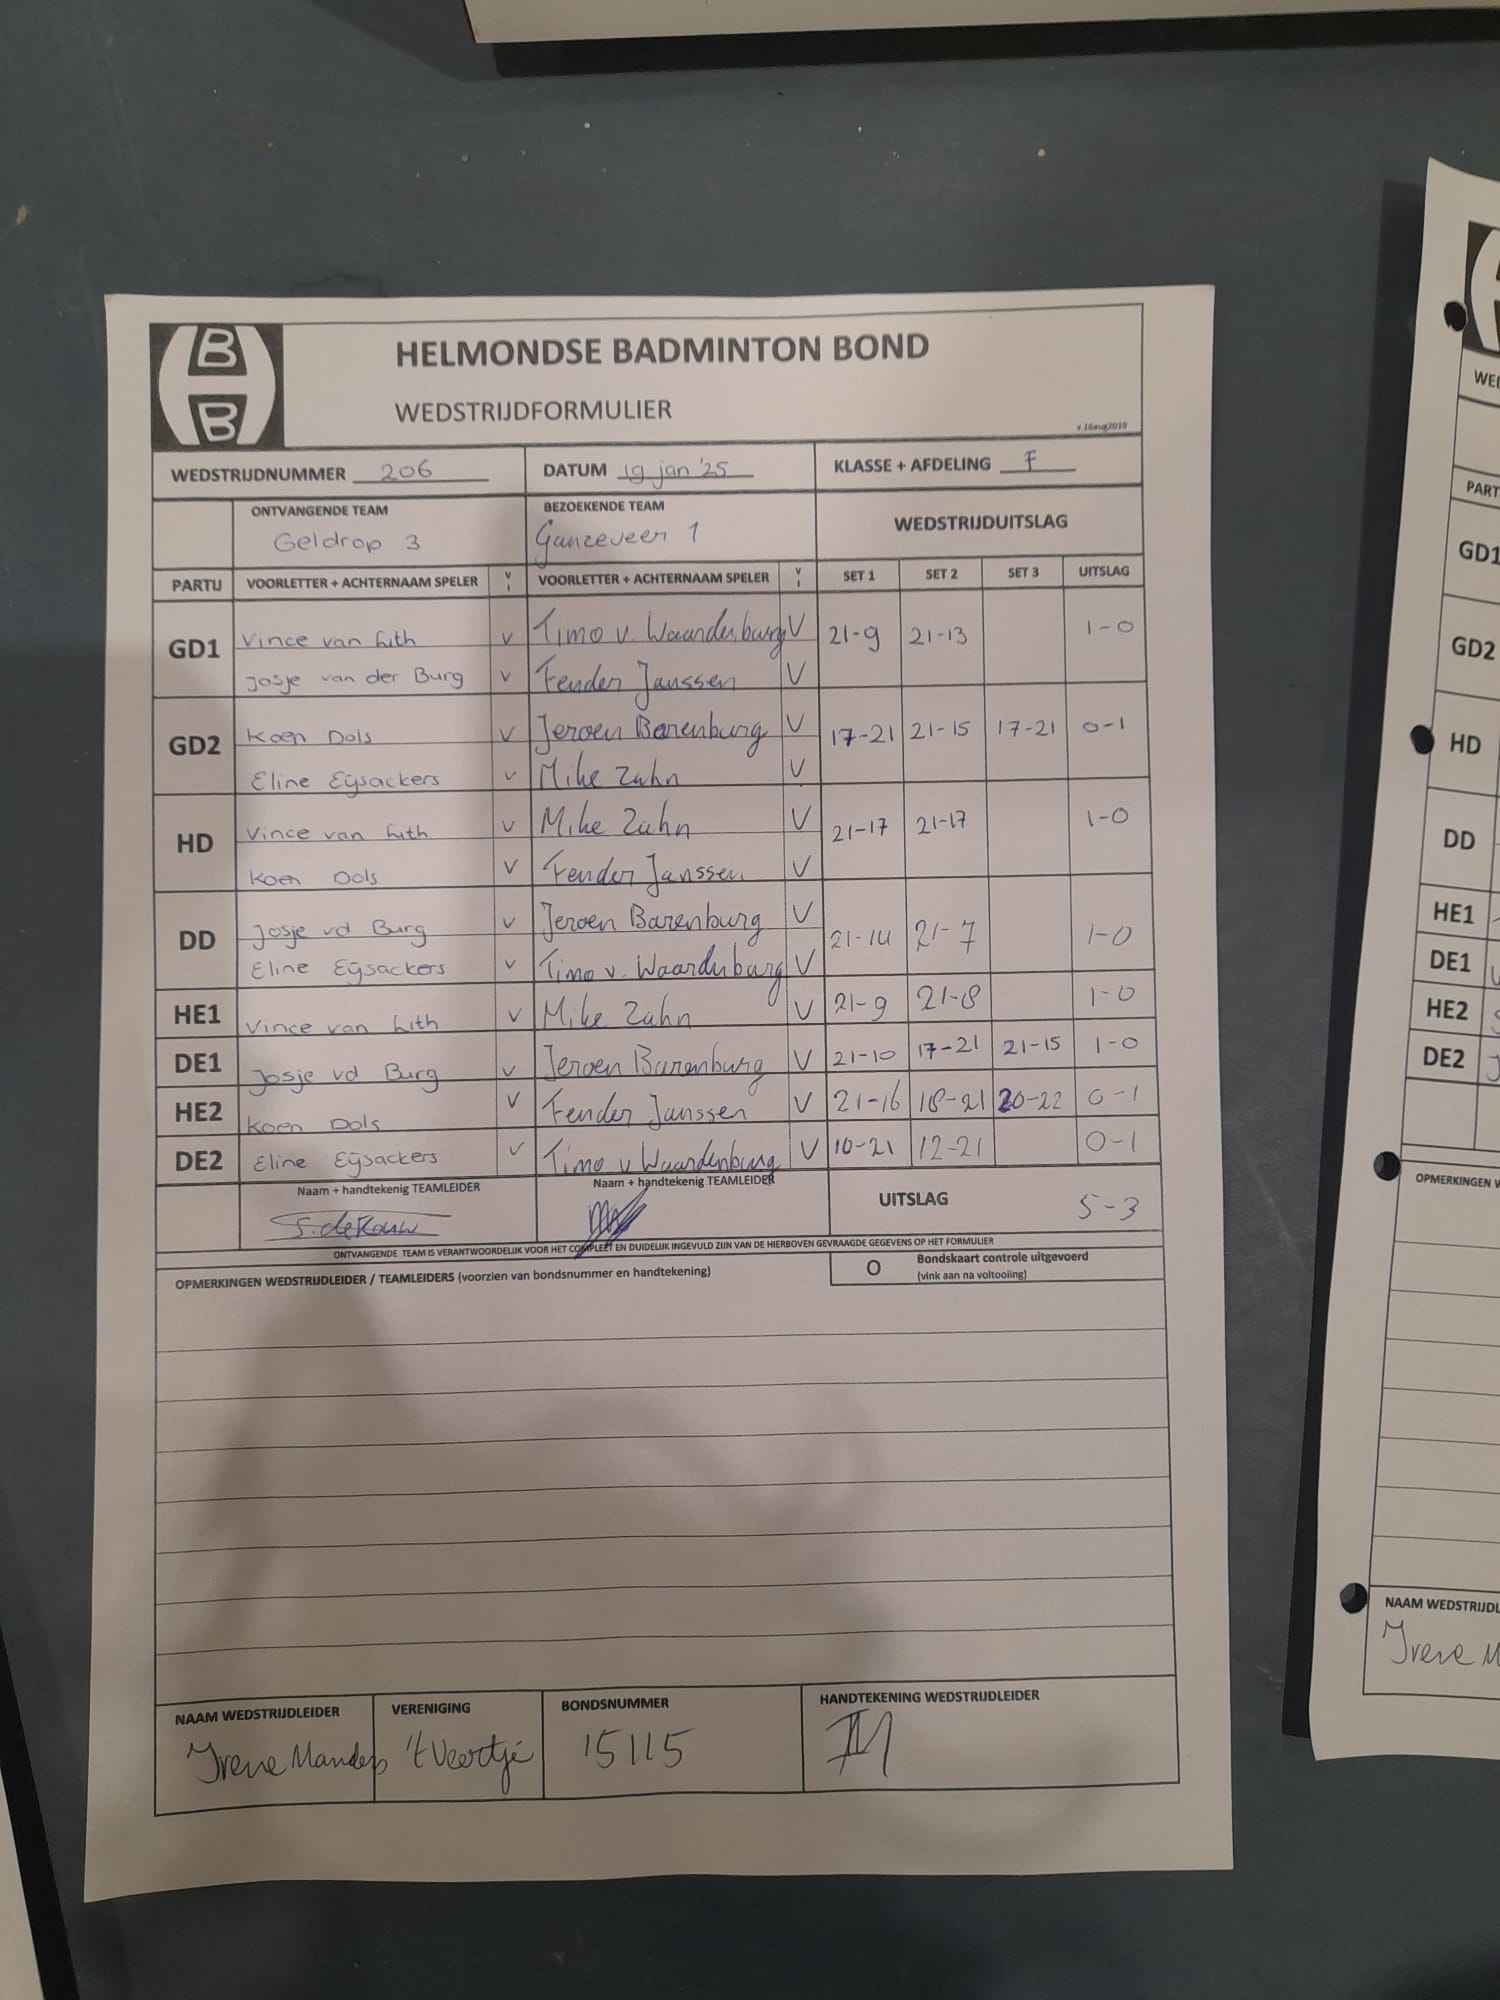 HELMONDSE BADMINTON BOND
WEDSTRIJDFORMULIER
v.16aug2019
WEDSTRIJDNUMMER 206 DATUM 19 jan '25 KLASSE + AFDELING F
ONTVANGENDE TEAM BEZOEKENDE TEAM WEDSTRIJDUITSLAG
Geldrop 3 Ganzeveer 1
PARTIJ VOORLETTER + ACHTERNAAM SPELER V VOORLETTER + ACHTERNAAM SPELER V SET 1 SET 2 SET 3 UITSLAG
GD1 Vince van Lith v Timo v. Waardenburg V 21-9 21-13 1-0
Josje van der Burg v Fender Janssen V
GD2 Koen Dols v Jeroen Barenburg V 17-21 21-15 17-21 0-1
Eline Eijsackers v Mike Zahn V
HD Vince van Lith v Mike Zahn V 21-17 21-17 1-0
Koen Dols v Fender Janssen V
DD Josje vd Burg v Jeroen Barenburg V 21-14 21-7 1-0
Eline Eijsackers v Timo v. Waardenburg V
HE1 Vince van Lith v Mike Zahn V 21-9 21-8 1-0
DE1 Josje vd Burg v Jeroen Barenburg V 21-10 17-21 21-15 1-0
HE2 Koen Dols v Fender Janssen V 21-16 18-21 20-22 0-1
DE2 Eline Eijsackers v Timo v Waardenburg V 10-21 12-21 0-1
Naam + handtekenig TEAMLEIDER Naam + handtekenig TEAMLEIDER UITSLAG 5-3
ONTVANGENDE TEAM IS VERANTWOORDELIJK VOOR HET COMPLEET EN DUIDELIJK INGEVULD ZIJN VAN DE HIERBOVEN GEVRAAGDE GEGEVENS OP HET FORMULIER
OPMERKINGEN WEDSTRIJDLEIDER / TEAMLEIDERS (voorzien van bondsnummer en handtekening) O Bondskaart controle uitgevoerd
(vink aan na voltooiing)
NAAM WEDSTRIJDLEIDER VERENIGING BONDSNUMMER HANDTEKENING WEDSTRIJDLEIDER
Irene Manders 't Veertje 15115 IM
GD1
GD2
HD
DD
HE1
DE1
HE2
DE2
Irene